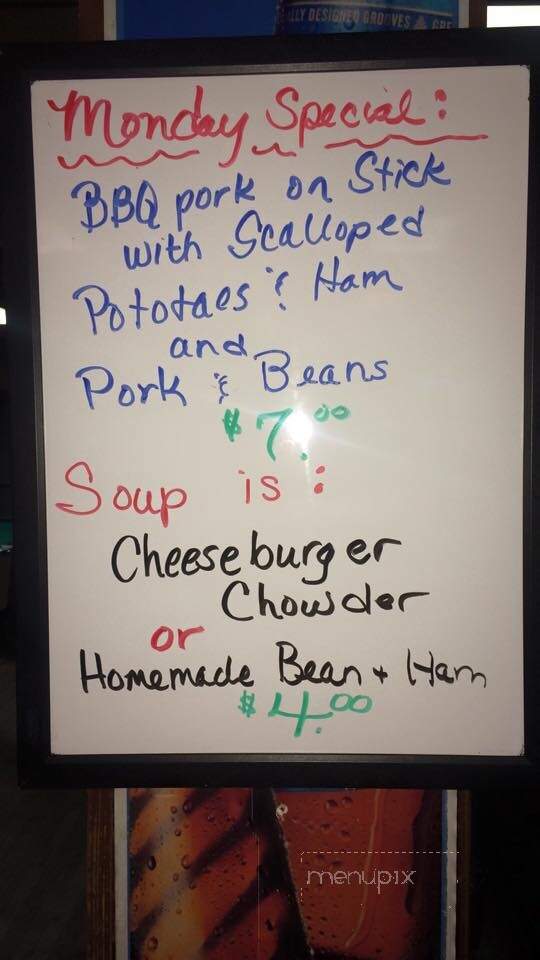 ALLY DESIGNED GROOVES
Monday Special:
BBQ pork on Stick
with Scalloped
Pototaes & Ham
and
Pork & Beans
$7.00
Soup is:
Cheeseburger
Chowder
or
Homemade Bean + Ham
$4.00
menupix